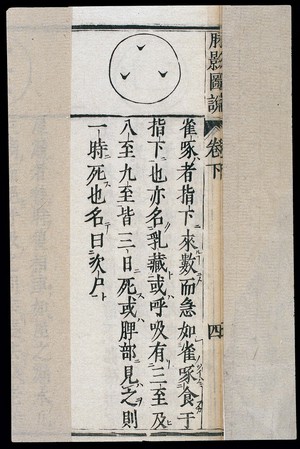 脉影圖說
卷下
四
雀啄者指下來數而急如雀啄食于
指下也亦名乳藏或呼吸有三至及
八至九至皆三日死或脾部見之則
一時死也名曰